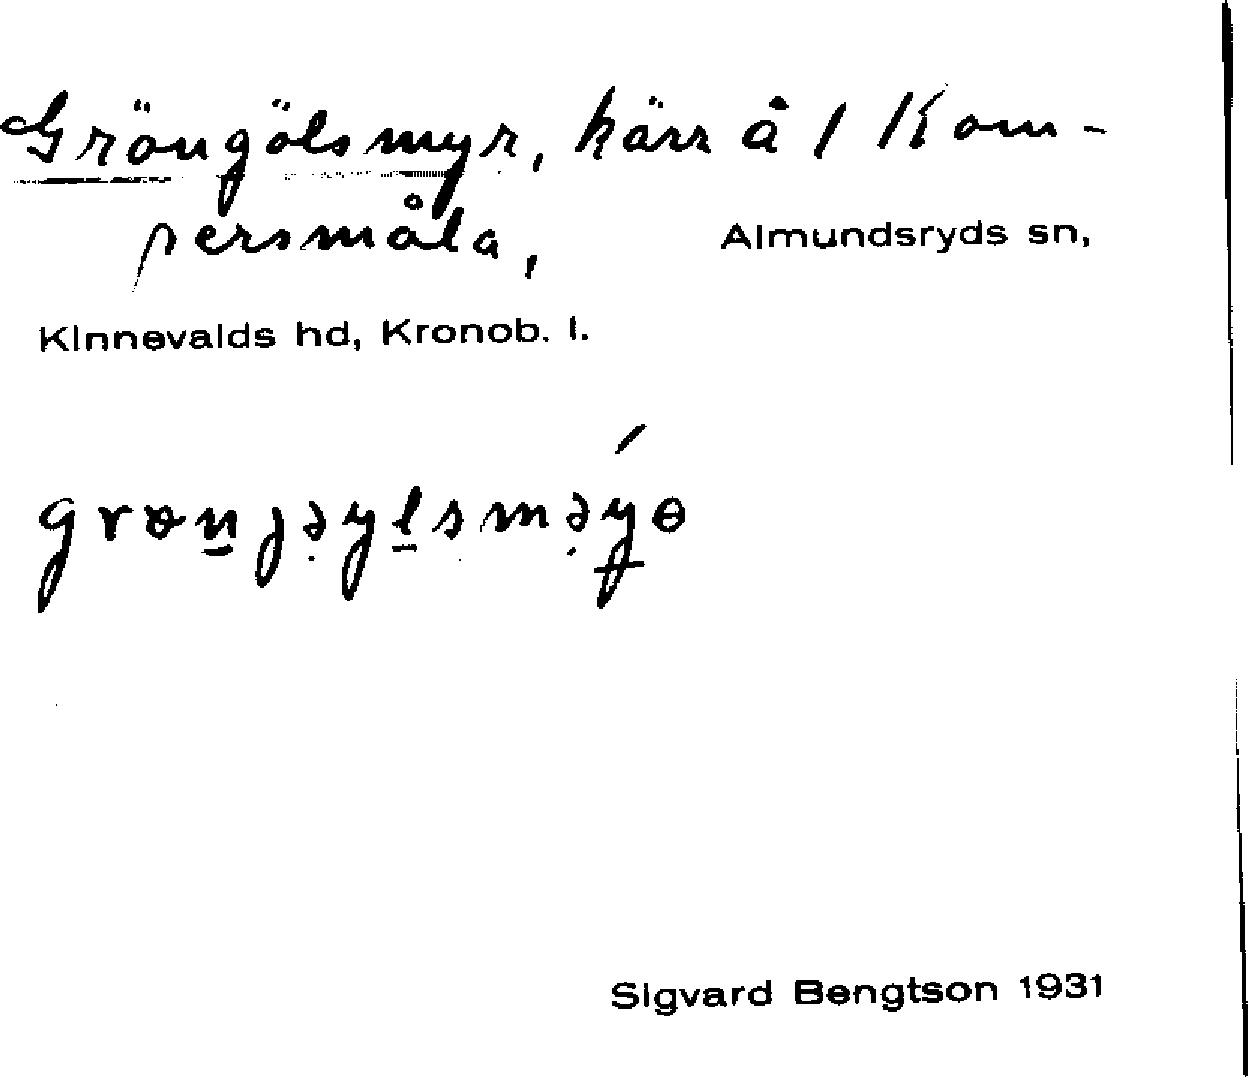 Gröngölsmyr, kärr å 1 Kom-
persmåla, Almundsryds sn,
Kinnevalds hd, Kronob. l.
Sigvard Bengtson 1931